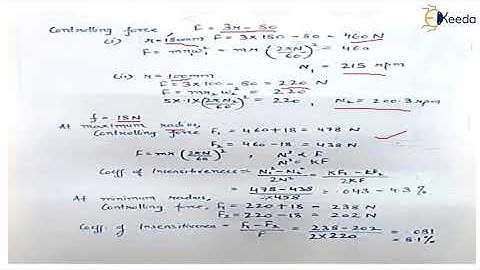 Ekeeda
Controlling force F = 3r - 80
(i) r = 180mm F = 3 x 180 - 80 = 460 N
F = mr₁ω₁² = mr (2πN/60)² = 460
N₁ = 215 rpm
(ii) r = 100mm
F = 3 x 100 - 80 = 220 N
F = mr₂ω₂² = 220
5 x .1 x (2πN₂/60)² = 220, N₂ = 200.3 rpm
f = 18N
At maximum radius,
Controlling force F₁ = 460 + 18 = 478 N
F₂ = 460 - 18 = 438 N
F = mr (2πN/60)², N² ∝ F
N² = KF
Coeff. of Insensitiveness = N₁² - N₂²/2N² = KF₁ - KF₂/2KF
= 478 - 438/2x458 = .043 - 4.3 %
At minimum radius,
Controlling force, F₁ = 220 + 18 = 238 N
F₂ = 220 - 18 = 202 N
Coeff. of Insensitiveness = F₁ - F₂/F = 238 - 202/2 x 220 = .081
= 8.1 %